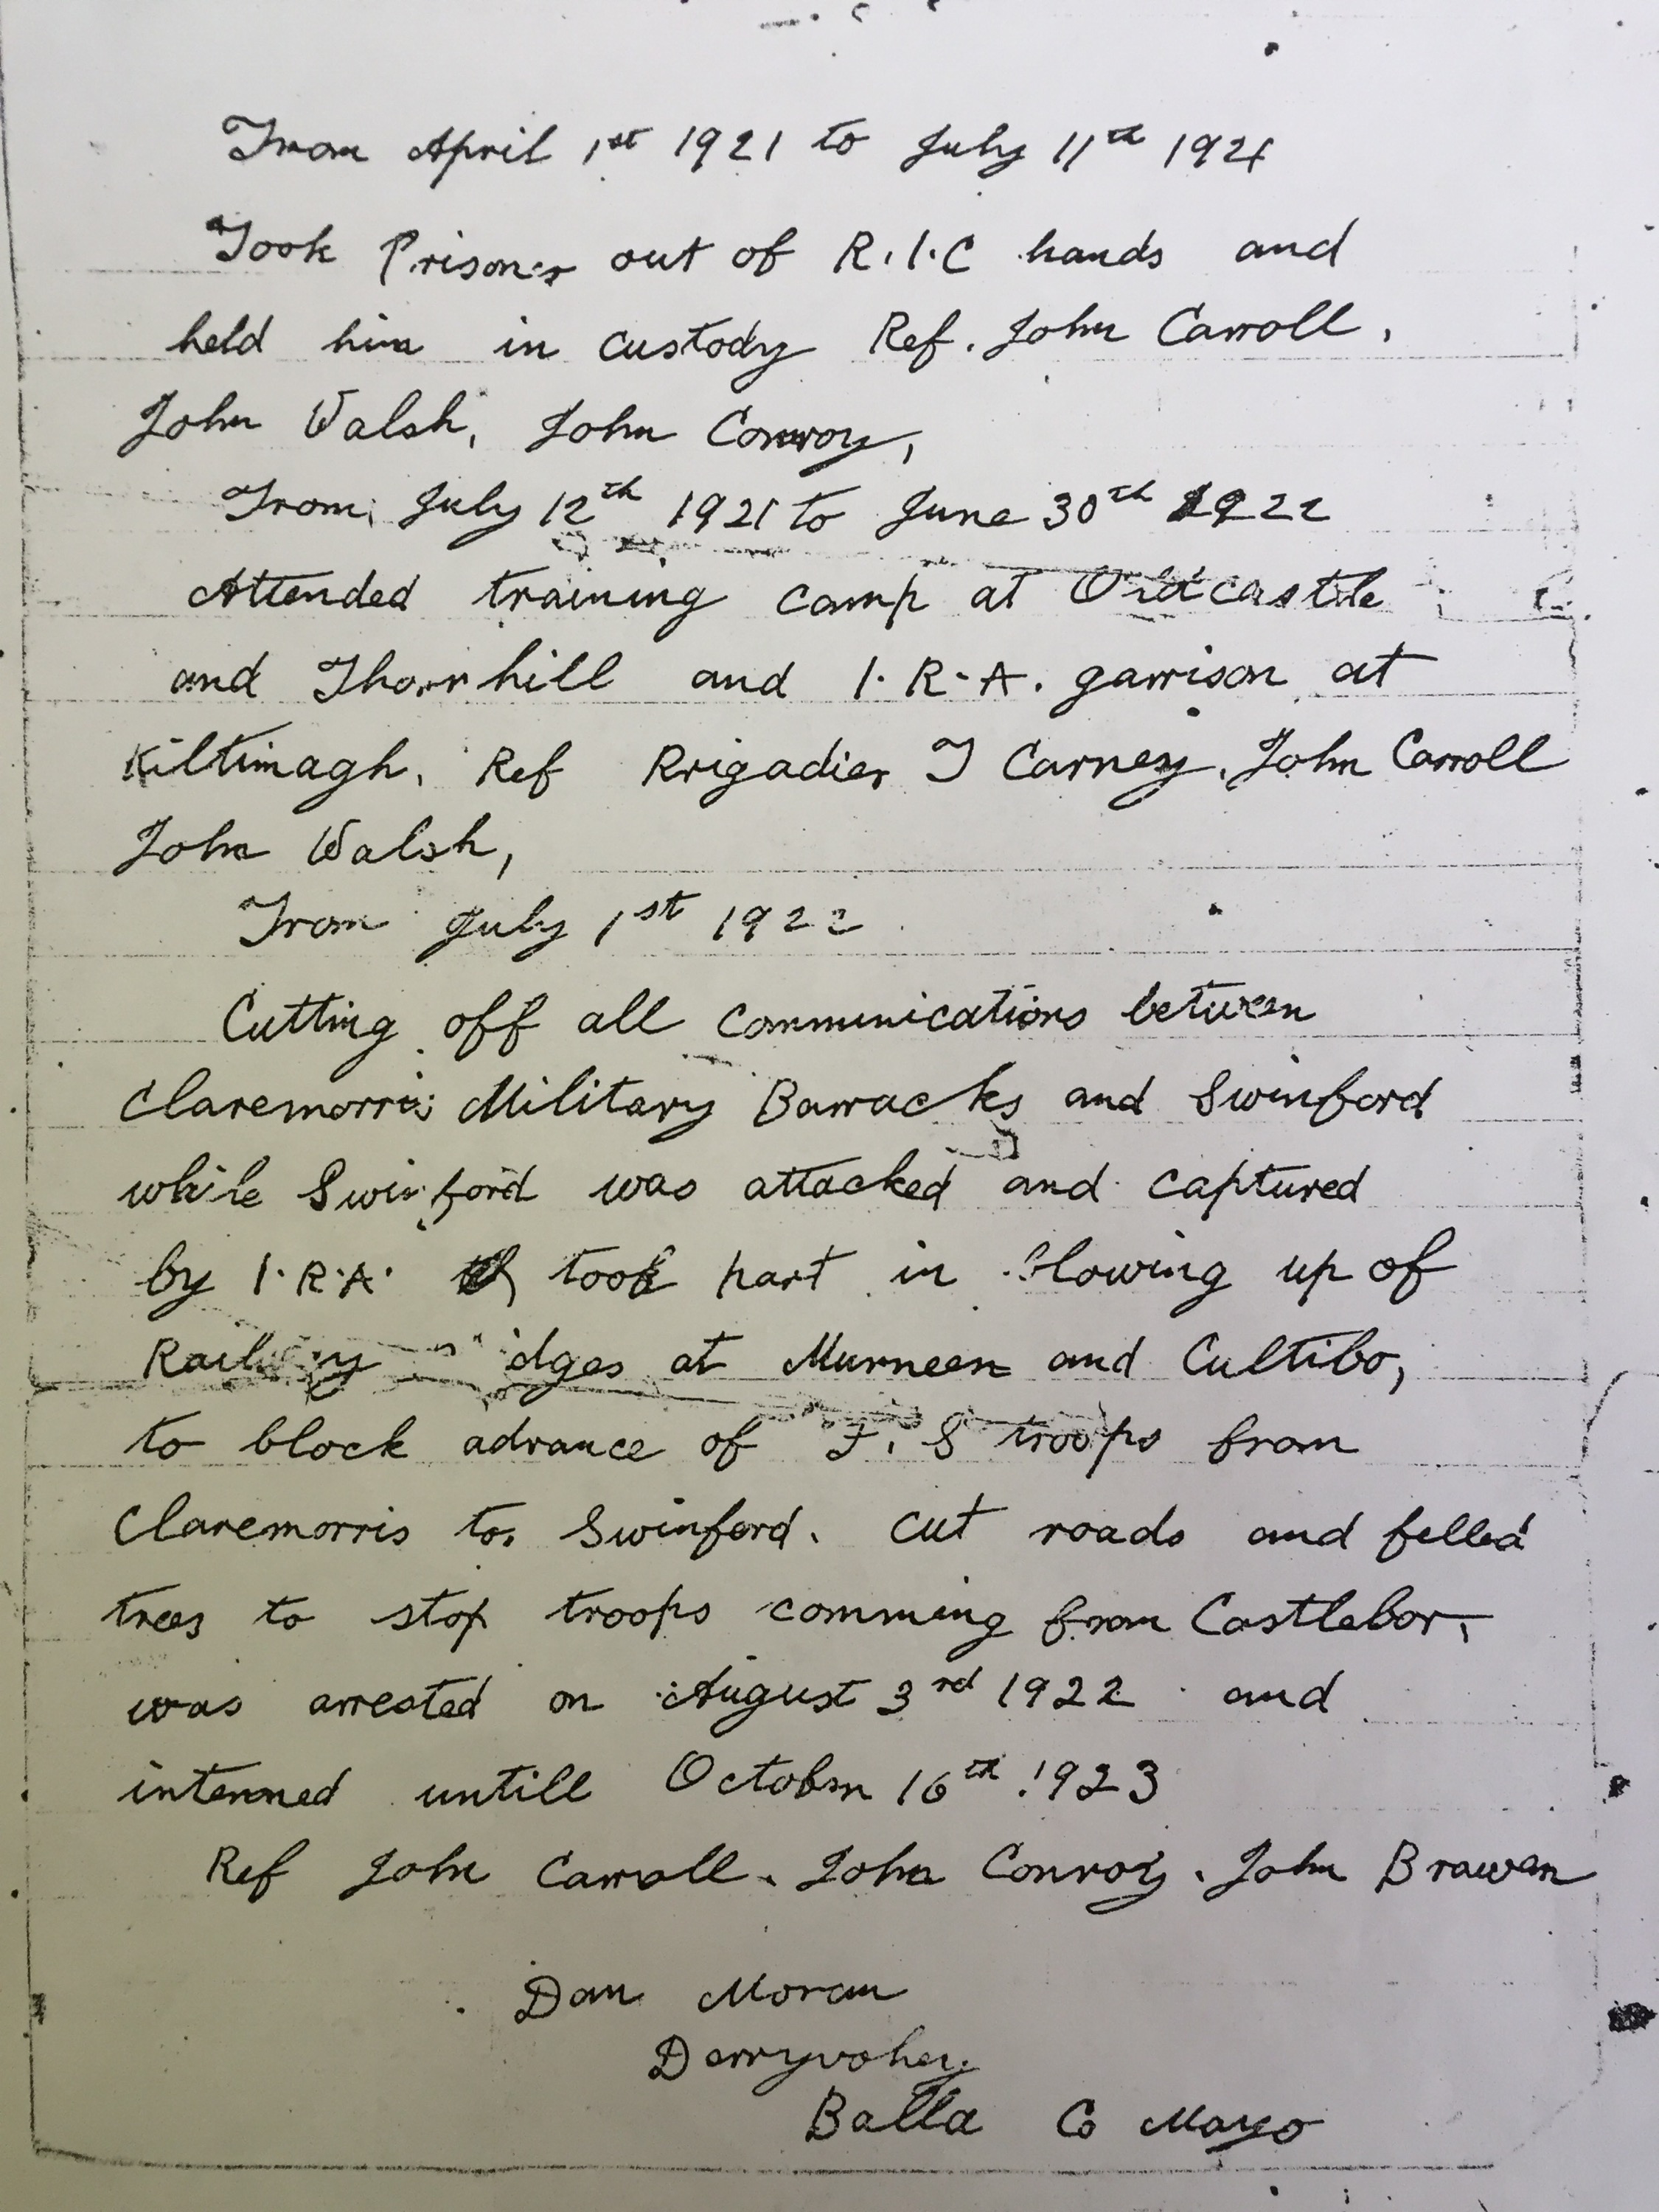 From April 1st 1921 to July 11th 1921
Took Prisoner out of R.I.C hands and
held him in custody Ref. John Carroll,
John Walsh, John Conroy,
From July 12th 1921 to June 30th 1922
Attended training camp at Oldcastle
and Thornhill and I.R.A. garrison at
Kiltimagh. Ref Brigadier T Carney, John Carroll
John Walsh,
From July 1st 1922
Cutting off all communications between
Claremorris Military Barracks and Swinford
while Swinford was attacked and captured
by I.R.A. took part in blowing up of
Railway at Murneen and Cultibo,
to block advance of F.S troops from
Claremorris to Swinford. cut roads and felled
trees to stop troops comming from Castlebar,
was arrested on August 3rd 1922 and
interned untill October 16th 1923
Ref John Carroll. John Conroy. John Brawen
Dan Moran
Derryvohey
Balla Co Mayo